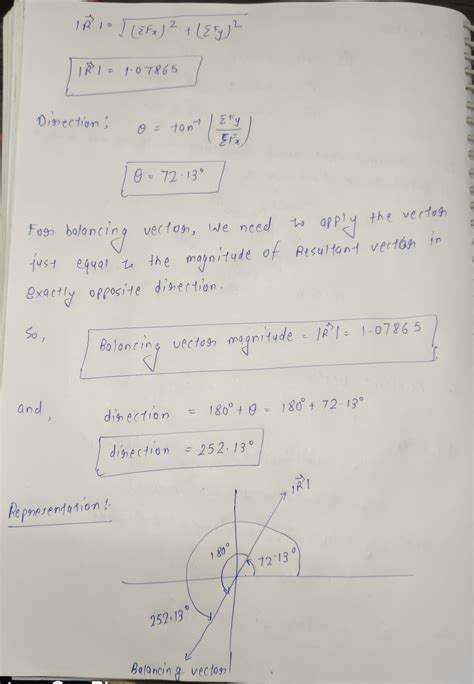 |R⃗| = √(ΣFx)² + (ΣFy)²
|R⃗| = 1.07865
Direction: θ = tan⁻¹ (ΣFy/ΣFx)
θ = 72.13°
For balancing vector, we need to apply the vector
just equal to the magnitude of Resultant vector in
exactly opposite direction.
So, Balancing vector magnitude = |R⃗| = 1.07865
and, direction = 180° + θ = 180° + 72.13°
direction = 252.13°
Representation:
|R⃗|
180°
72.13°
252.13°
Balancing vector